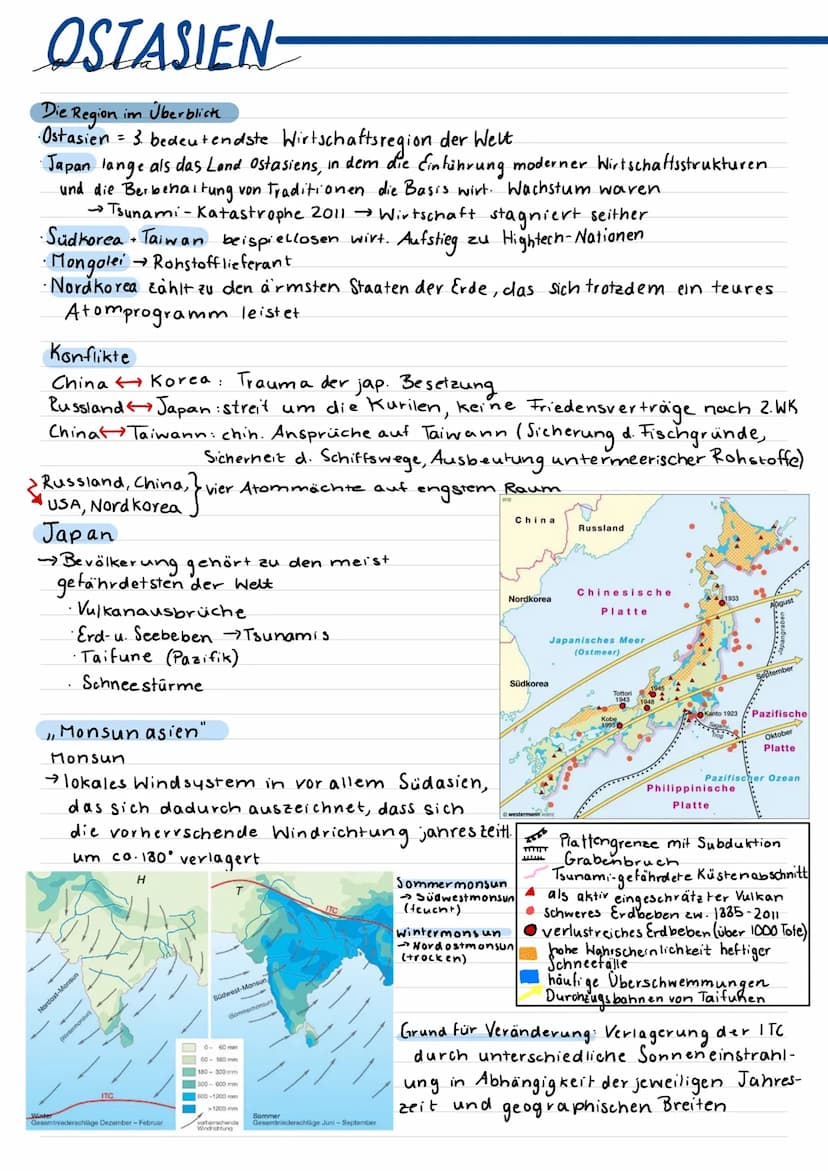 OSTASIEN
ostasien
Die Region im Überblick
· Ostasien = 3. bedeutendste Wirtschaftsregion der Welt
Japan lange als das Land Ostasiens, in dem die Einführung moderner Wirtschaftsstrukturen
und die Beibehaltung von Traditionen die Basis wirt. Wachstum waren
→ Tsunami-Katastrophe 2011 → Wirtschaft stagniert seither
· Südkorea + Taiwan beispiellosen wirt. Aufstieg zu Hightech-Nationen
· Mongolei → Rohstofflieferant
· Nordkorea zählt zu den ärmsten Staaten der Erde, das sich trotzdem ein teures
Atomprogramm leistet
Konflikte
China ↔ Korea: Trauma der jap. Besetzung
Russland ↔ Japan: streit um die Kurilen, keine Friedensverträge nach 2.WK
China ↔ Taiwann: chin. Ansprüche auf Taiwann (Sicherung d. Fischgründe,
Sicherheit d. Schiffswege, Ausbeutung untermeerischer Rohstoffe)
Russland, China, } vier Atommächte auf engstem Raum
USA, Nordkorea
Japan
→ Bevölkerung gehört zu den meist
gefährdetsten der Welt
· Vulkanausbrüche
· Erd- u. Seebeben → Tsunamis
· Taifune (Pazifik)
· Schneestürme
China
Russland
Nordkorea
Chinesische
Platte
Japanisches Meer
(Ostmeer)
Südkorea
1933
August
Japangraben
September
Tottori
1943
1945
1948
Kobe
1995
Kanto 1923
Pazifische
Platte
Oktober
Pazifischer Ozean
Philippinische
Platte
© westermann
„Monsunasien"
Monsun
→ lokales Windsystem in vor allem Südasien,
das sich dadurch auszeichnet, dass sich
die vorherrschende Windrichtung jahreszeitl.
um ca. 180° verlagert
Plattengrenze mit Subduktion
Grabenbruch
Tsunami-gefährdete Küstenabschnitt
als aktiv eingeschrätzter Vulkan
schweres Erdbeben zw. 1885-2011
verlustreiches Erdbeben (über 1000 Tote)
hohe Wahrscheinlichkeit heftiger
Schneefälle
häufige Überschwemmungen
Durchzugsbahnen von Taifunen
H
Nordost-Monsun
(Wintermonsun)
ITC
Winter
Gesamtniederschläge Dezember – Februar
0- 60 mm
60- 180 mm
180- 300 mm
300- 600 mm
600-1200 mm
>1200 mm
vorherrschende
Windrichtung
T
ITC
Südwest-Monsun
(Sommermonsun)
Sommer
Gesamtniederschläge Juni – September
Sommermonsun
→ Südwestmonsun
(feucht)
Wintermonsun
→ Nordostmonsun
(trocken)
Grund für Veränderung: Verlagerung der ITC
durch unterschiedliche Sonneneinstrahl-
ung in Abhängigkeit der jeweiligen Jahres-
zeit und geographischen Breiten